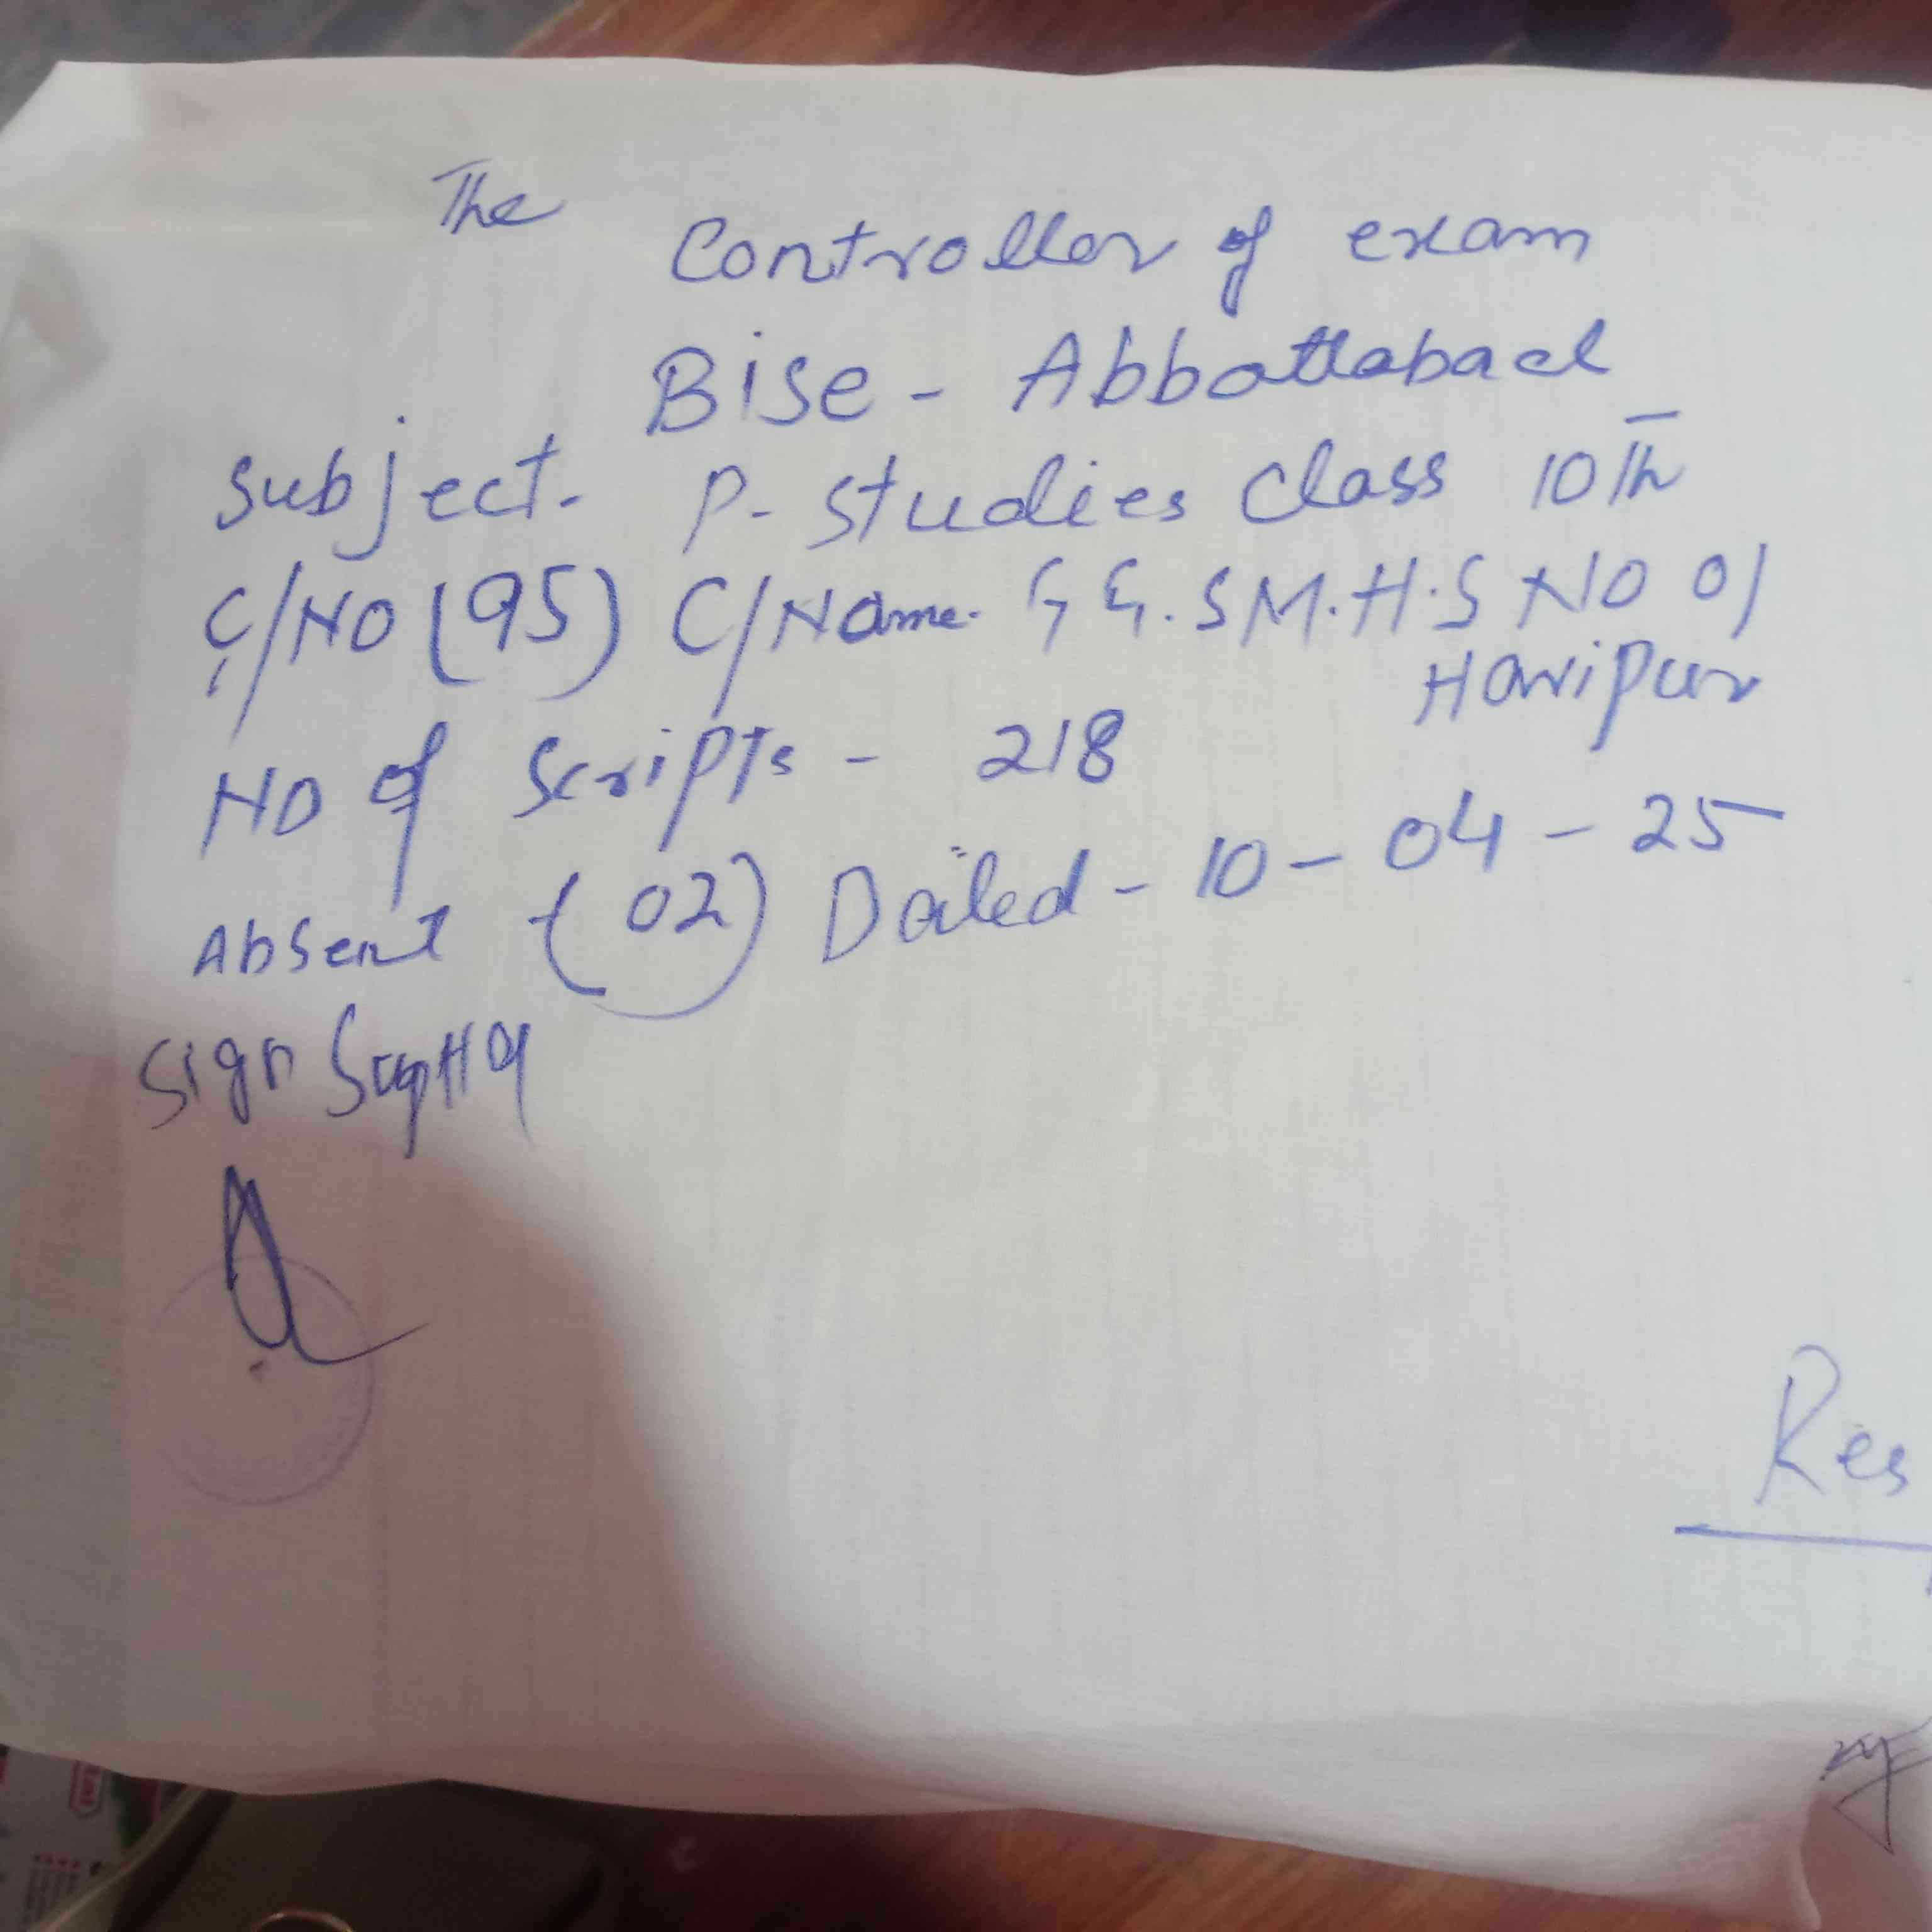 The
Controller of exam
BISe - Abbottabad
Subject- P- Studies Class 10th
C/NO (95) C/Name- G G.S M.H.S NO 01
Haripur
NO of Scripts - 218
Absent - (02) Dated - 10 - 04 - 25
Sign
Res